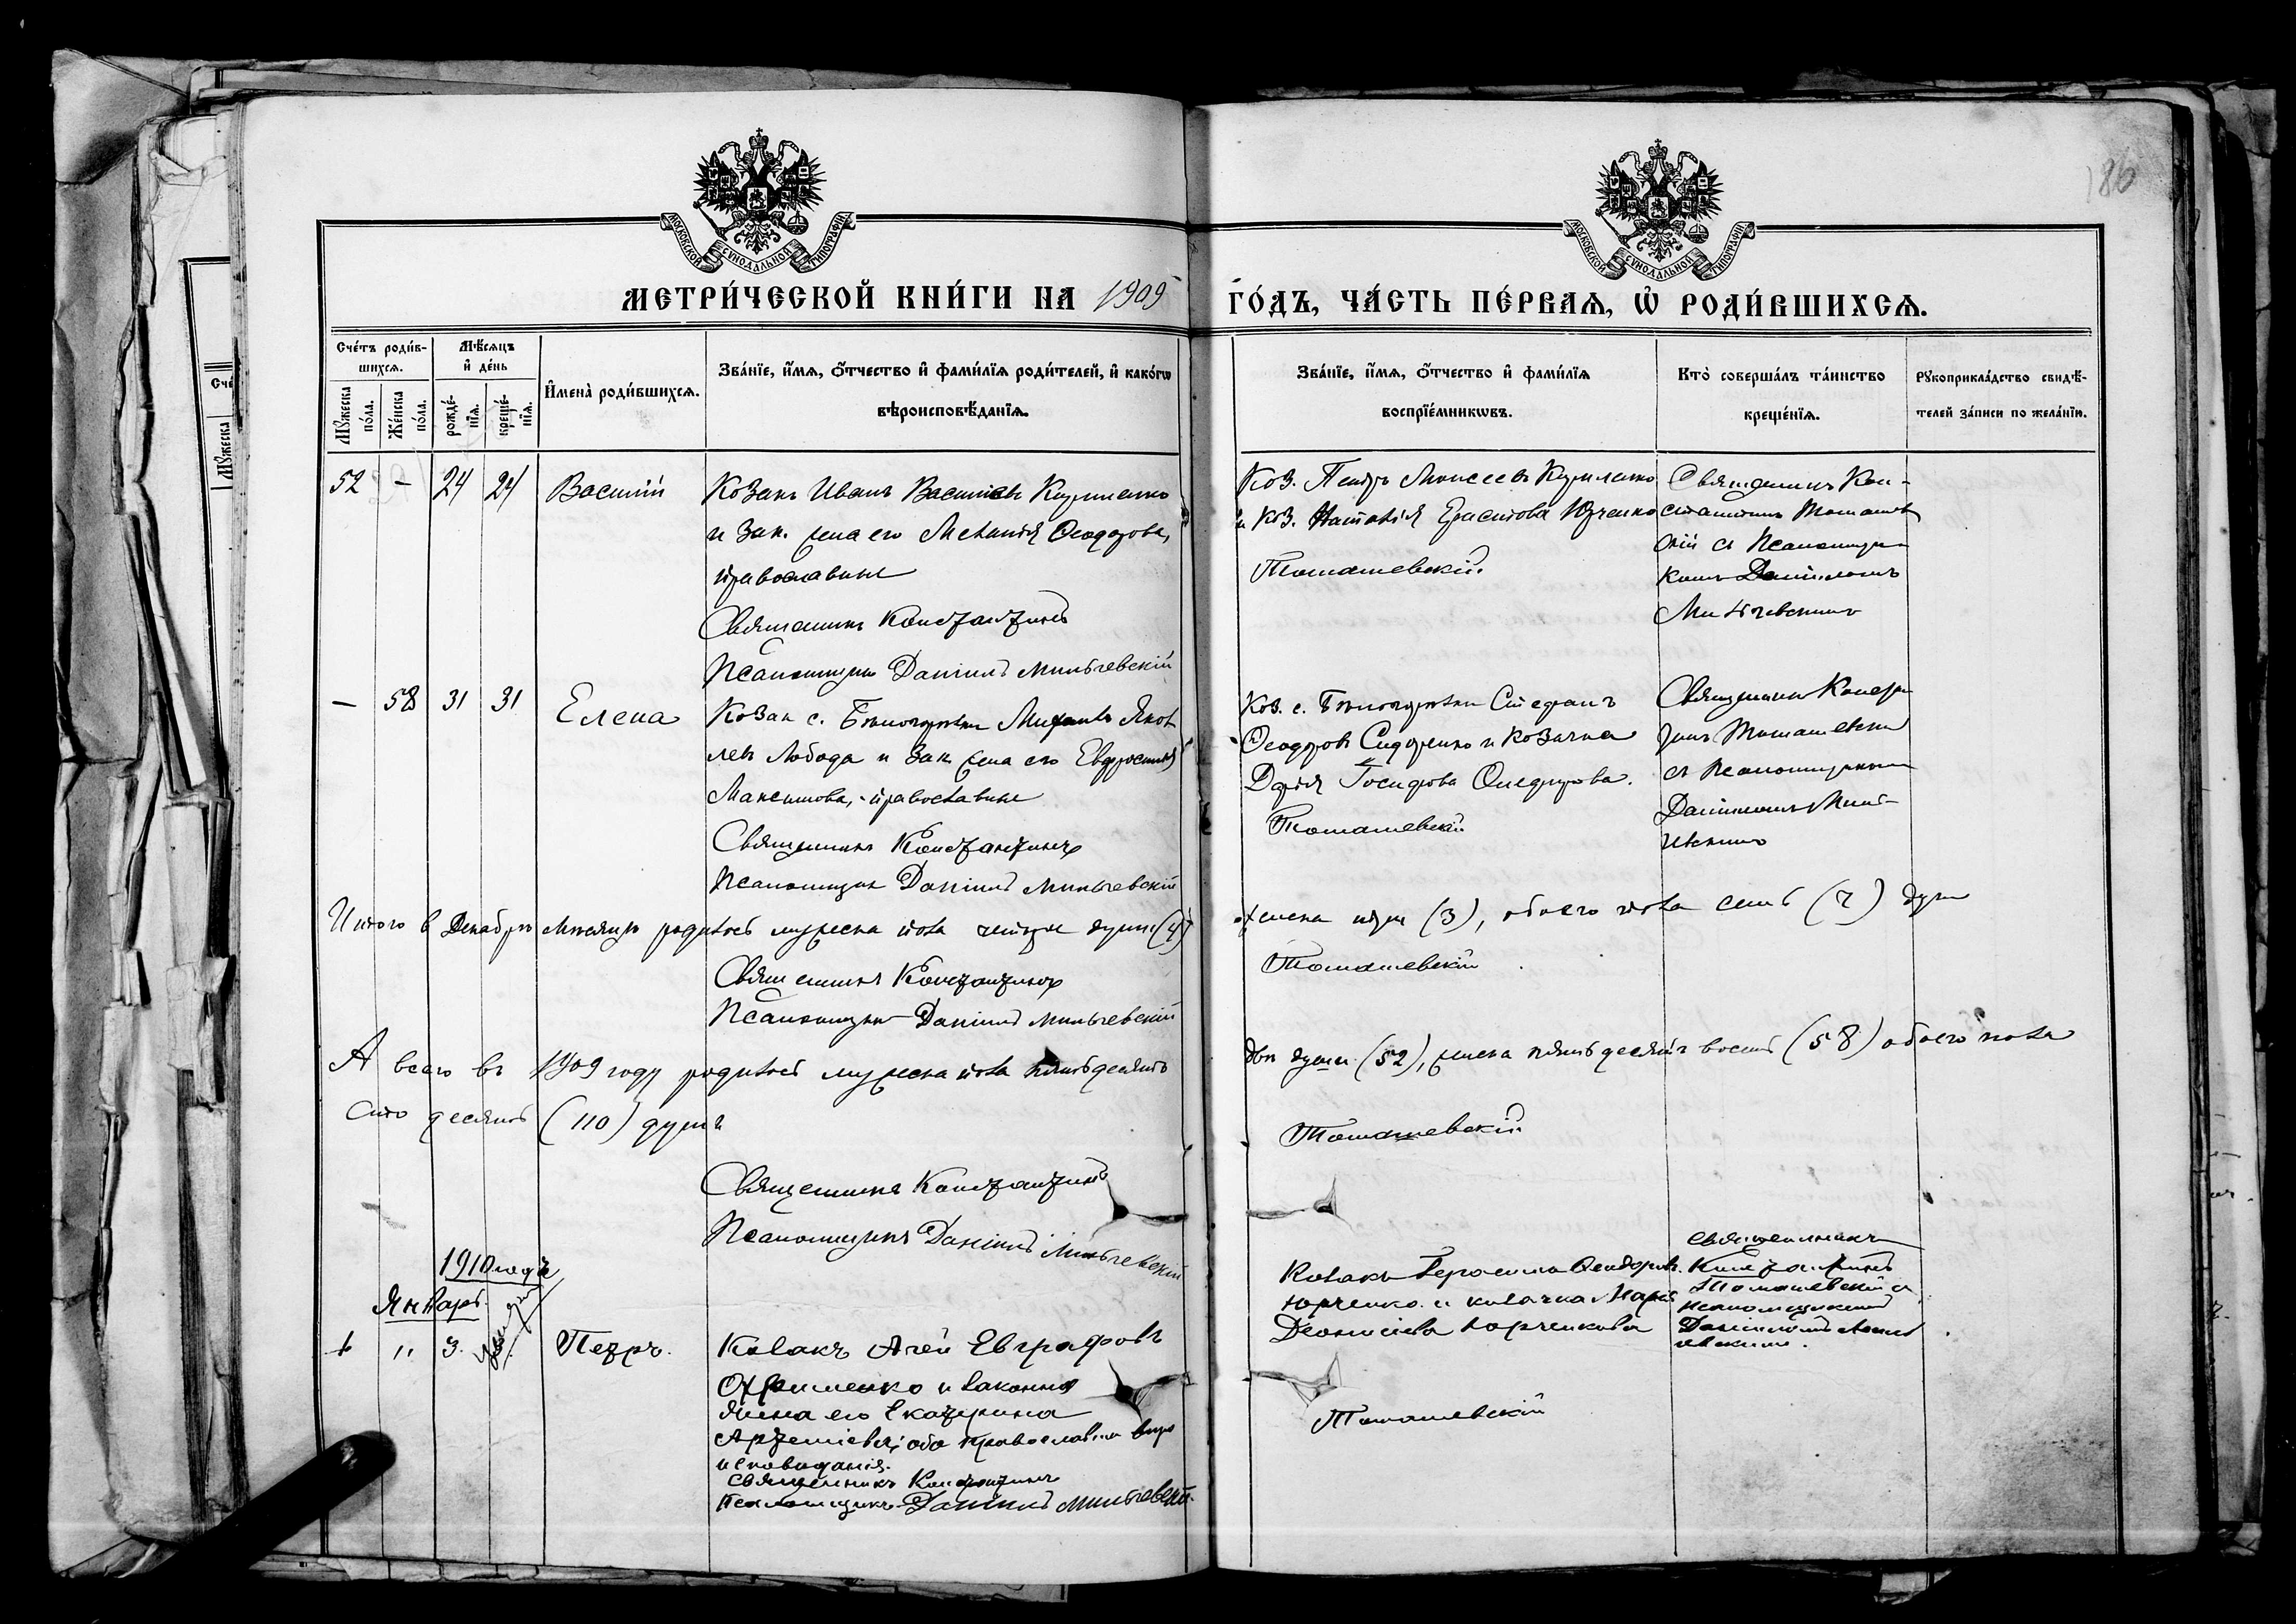 186
МОСКОВСКОЙ СѴНОДАЛЬНОЙ ТИПОГРАФІИ
МОСКОВСКОЙ СѴНОДАЛЬНОЙ ТИПОГРАФІИ
МЕТРИ́ЧЕСКОЙ КНИ́ГИ НА 1909 ГО́ДЪ, ЧА́СТЬ ПЕ́РВАѦ, Ѡ҆ РОДИ́ВШИХСѦ.
Сче́тъ роди́в-
шихсѧ.
Мѣ́сѧцъ
и҆ де́нь
Мꙋжеска по́ла.
Же́нска по́ла.
рожде́-нїѧ.
креще́-нїѧ.
И҆мена̀ роди́вшихсѧ.
Зва́нїе, и҆́мѧ, ѻ҆́тчество и҆ фами́лїѧ роди́телей, и҆ како́гѡ
вѣроисповѣ́данїѧ.
Зва́нїе, и҆́мѧ, ѻ҆́тчество и҆ фами́лїѧ
воспрїе́мникѡвъ.
Кто̀ соверша́лъ та́инство
креще́нїѧ.
Рꙋкоприкла́дство свидѣ́-
телей за́писи по жела́нїю.
52 - 24 24 Василій
Козакъ Иванъ Васильевъ
и зак. жена его Мелания Ѳеодорова,
православные
Священникъ Константинъ
Псаломщикъ Даніилъ
Коз. Петръ Моисеевъ
и Коз. Наталія Юрченко
Томашевскій
Священникъ Кон-
стантинъ Томашев
скій съ Псаломщи
комъ Даніиломъ
— 58 31 31 Елена
Козак с. Бѣлогорѣлки Михаилъ Яков
левъ Лобода и зак жена его Евфросинія
Максимова, православные
Священникъ Константинъ
Псаломщик Даніилъ
Коз. с. Бѣлогорѣлки Стефанъ
Ѳеодоровъ Сидоренко и козачка
Дарія
Томашевскій
Священникъ
Томашевскій
съ Псаломщикомъ
Даніиломъ
Итого в Декабрѣ мѣсяцѣ родилось мужеска пола четыре души (4)
женска три (3), обоего пола семь (7) душ
Священникъ Константинъ
Томашевскій
Псаломщикъ Даніилъ
А всего въ 1909 году родилось мужеска пола пятьдесятъ
двѣ души (52), женска пятьдесятъ восемь (58) обоего пола
сто десять (110) душъ
Томашевскій
Священникъ Константинъ
Псаломщикъ Даніилъ
1910 года
Январь.
1 " 3. Петръ.
Козакъ Агей Евграфовъ
Охрименко и законная
жена его Екатерина
Артемиева, оба православнаго вѣро
исповѣданія.
священникъ Константинъ
Псаломщикъ Даніилъ
Козакъ Герасимъ Ѳеодоровъ
Юрченко и козачка Марія
Діонисіева Юрченкова
Томашевскій
Священникъ
Константинъ
Томашевскій и
псаломщикомъ
Даніиломъ